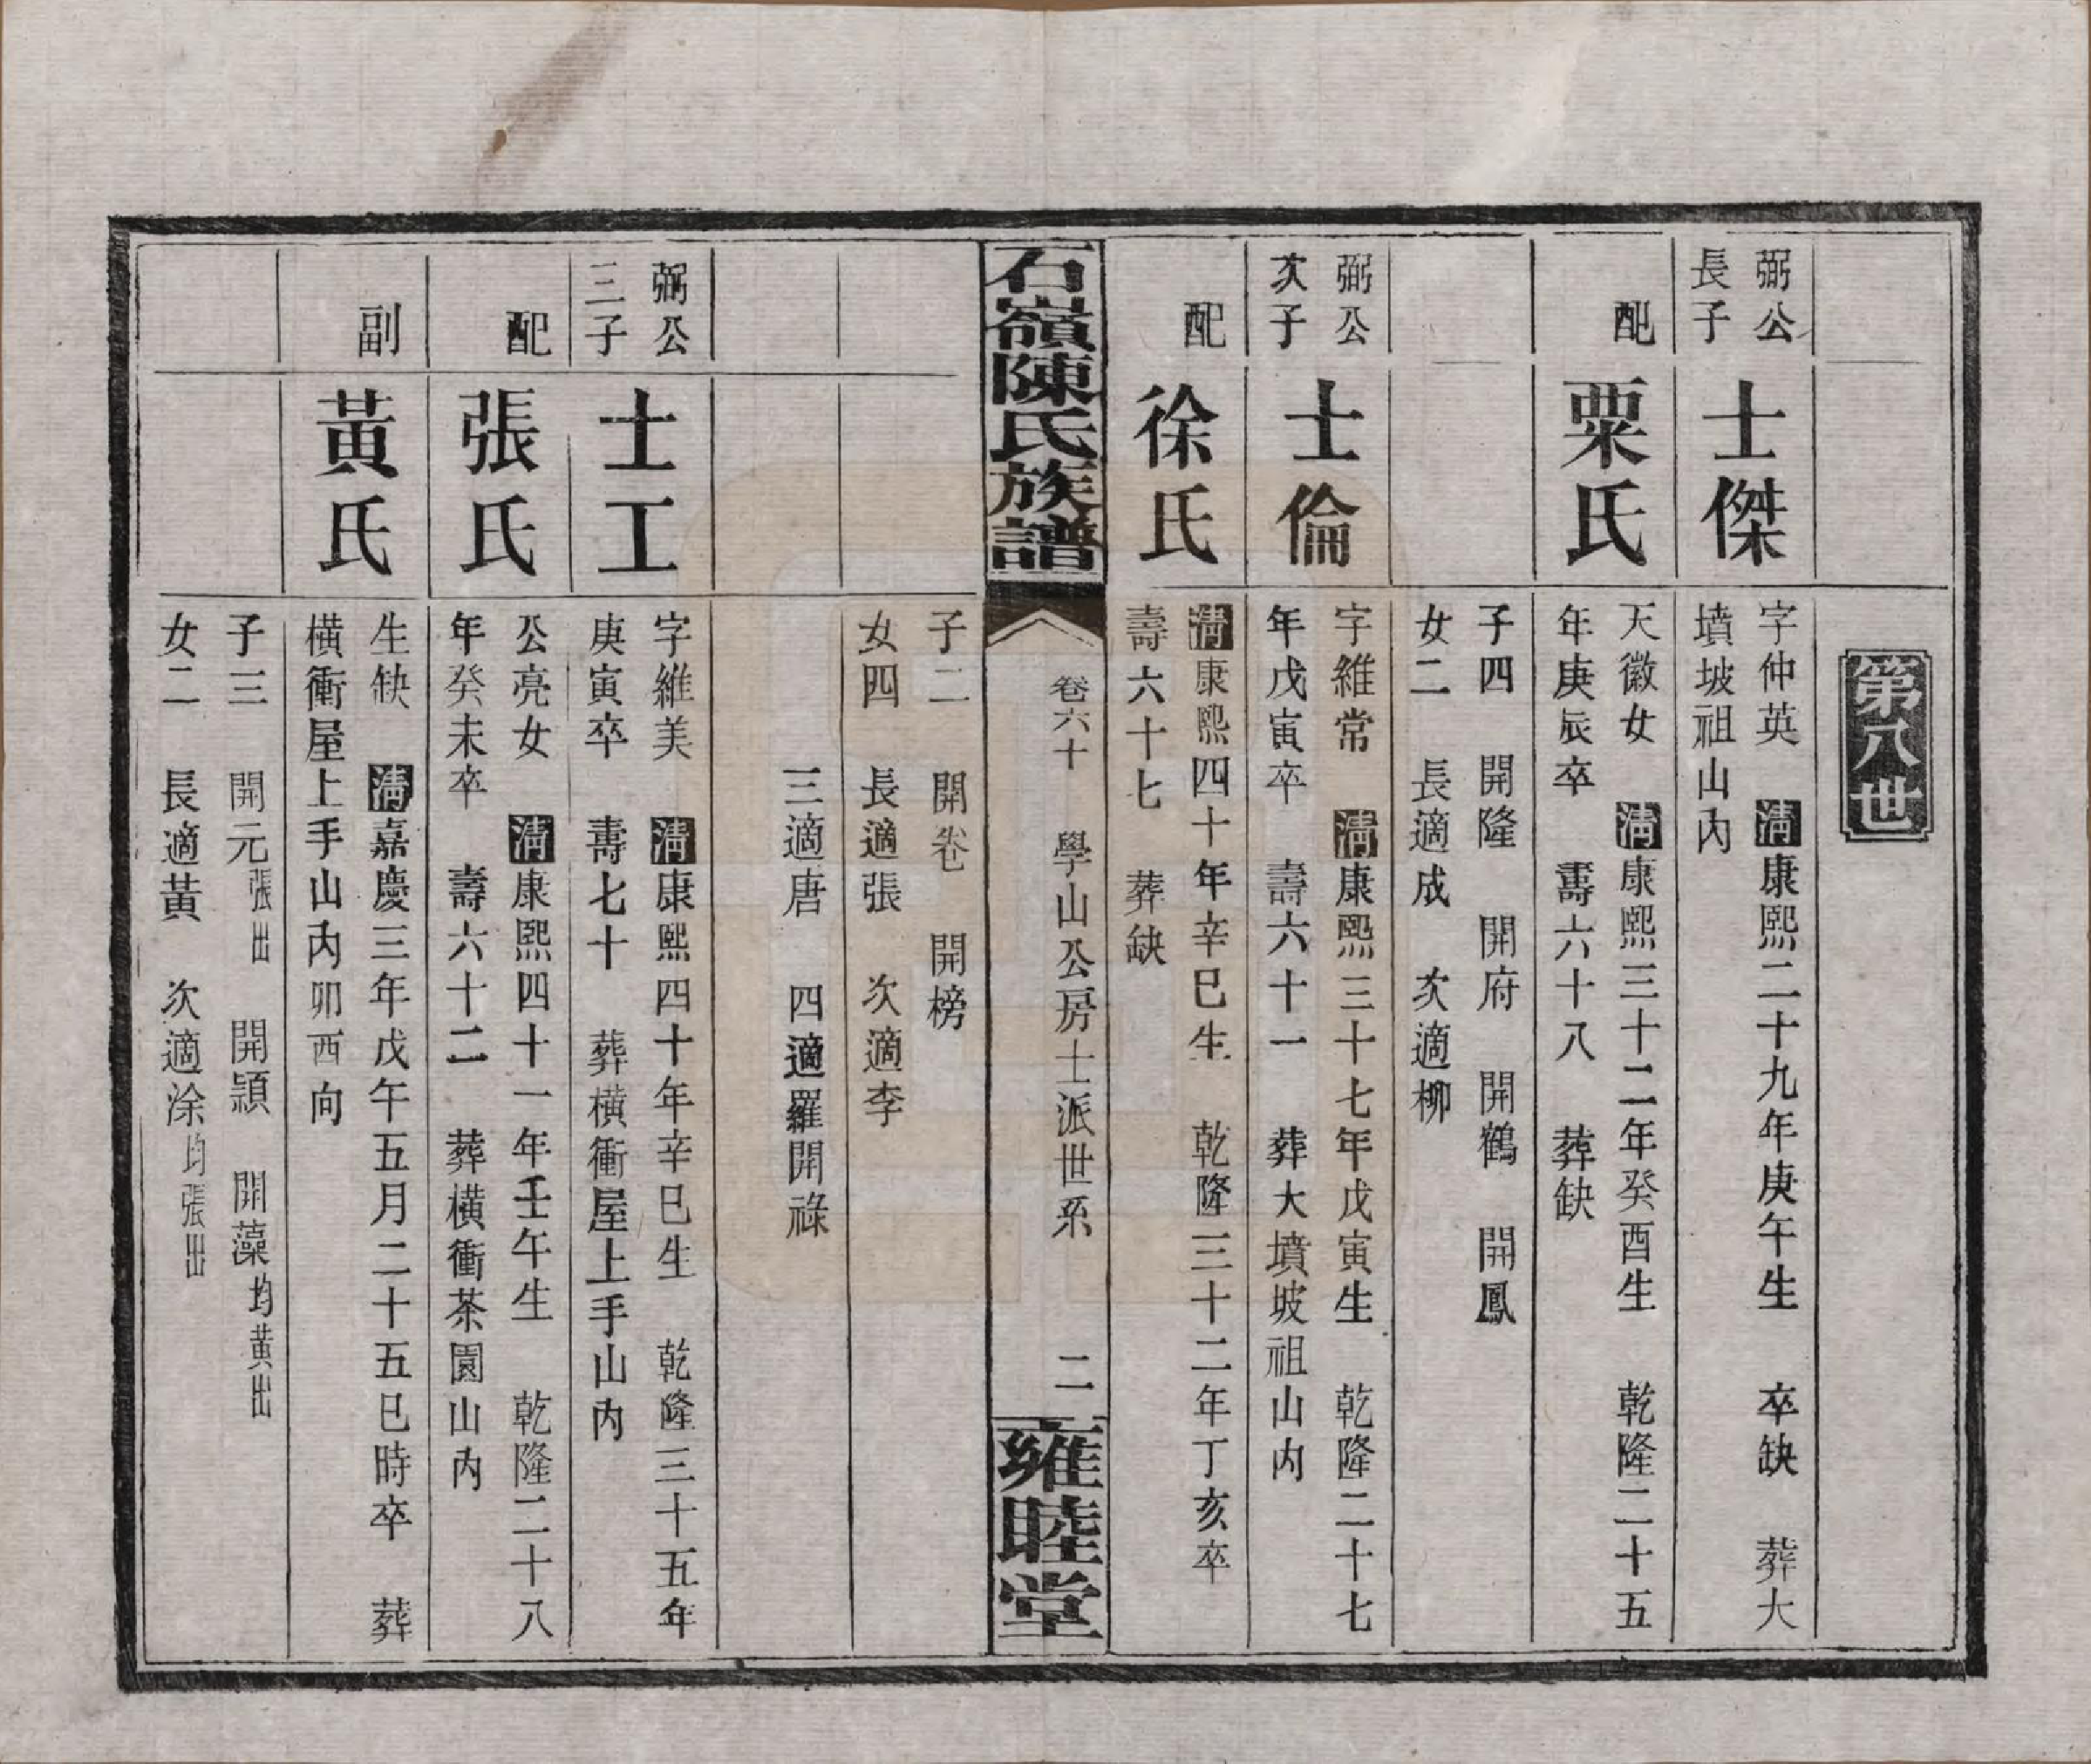 第八世
弼公
長子
士傑
字仲英　清康熙二十九年庚午生　卒缺　葬大
墳坡祖山內
配
粟氏
天徽女　清康熙三十二年癸酉生　乾隆二十五
年庚辰卒　壽六十八　葬缺
子四　開隆　開府　開鶴　開鳳
女二　長適成　次適柳
弼公
次子
士倫
字維常　清康熙三十七年戊寅生　乾隆二十七
年戊寅卒　壽六十一　葬大墳坡祖山內
配
徐氏
清康熙四十年辛巳生　乾隆三十二年丁亥卒
壽六十七　葬缺
石嶺陳氏族譜
卷六十　學山公房士派世系　二
雍睦堂
子二　開卷　開榜
女四　長適張　次適李
三適唐　四適羅開祿
弼公
三子
士工
字維美　清康熙四十年辛巳生　乾隆三十五年
庚寅卒　壽七十　葬橫衝屋上手山內
配
張氏
公亮女　清康熙四十一年壬午生　乾隆二十八
年癸未卒　壽六十二　葬橫衝茶園山內
副
黃氏
生缺　清嘉慶三年戊午五月二十五巳時卒　葬
橫衝屋上手山內卯酉向
子三　開元張出　開穎　開藻均黃出
女二　長適黃　次適涂均張出